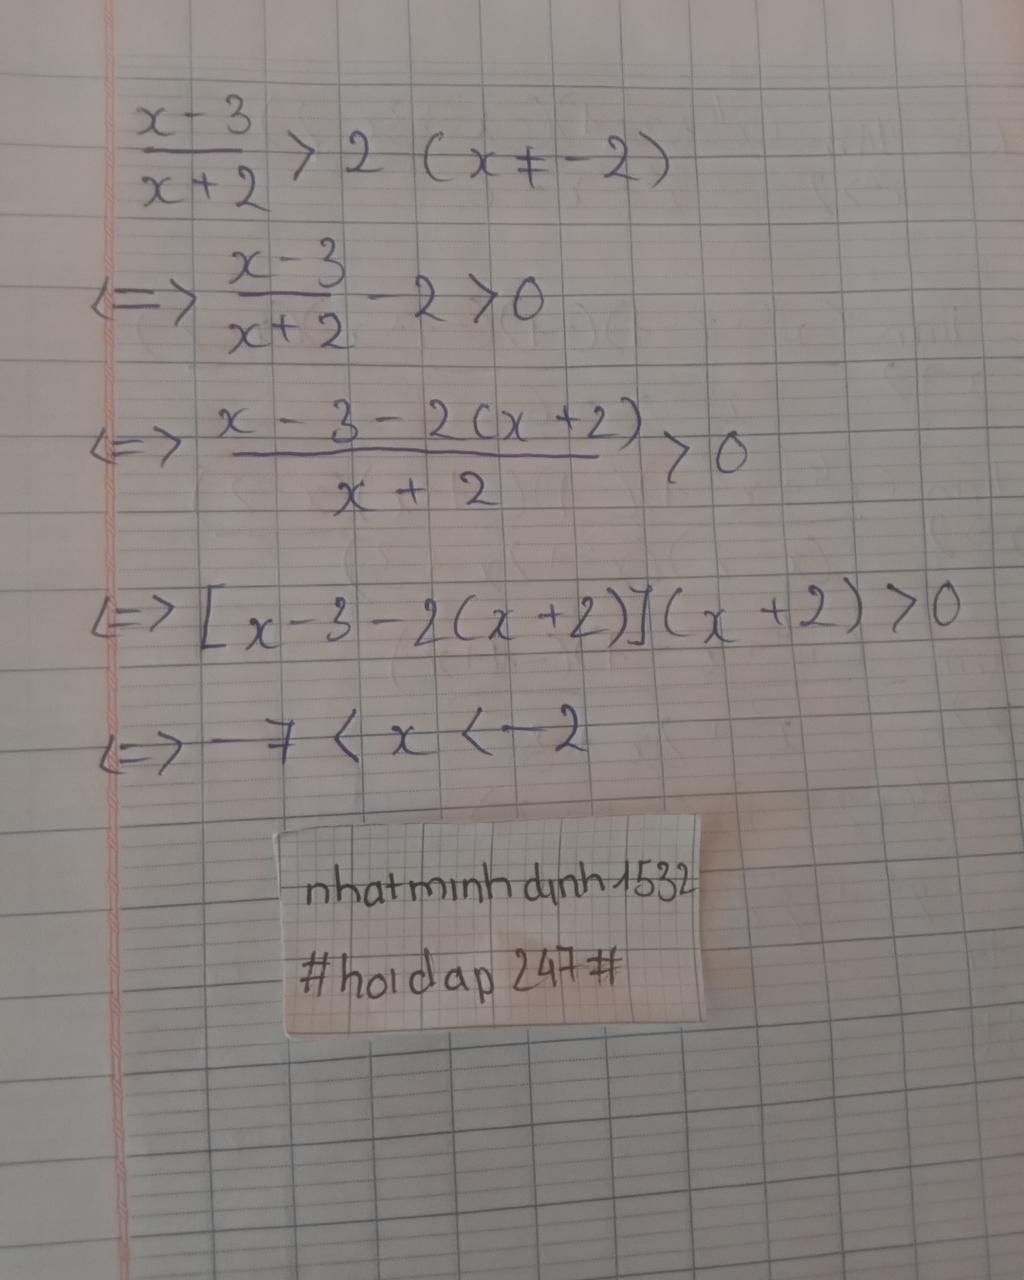 x - 3 / x + 2 > 2 (x ≠ -2)
<=> x - 3 / x + 2 - 2 > 0
<=> x - 3 - 2(x + 2) / x + 2 > 0
<=> [x - 3 - 2(x + 2)](x + 2) > 0
<=> -7 < x < -2
nhatminhdinh1532
#hoidap247#